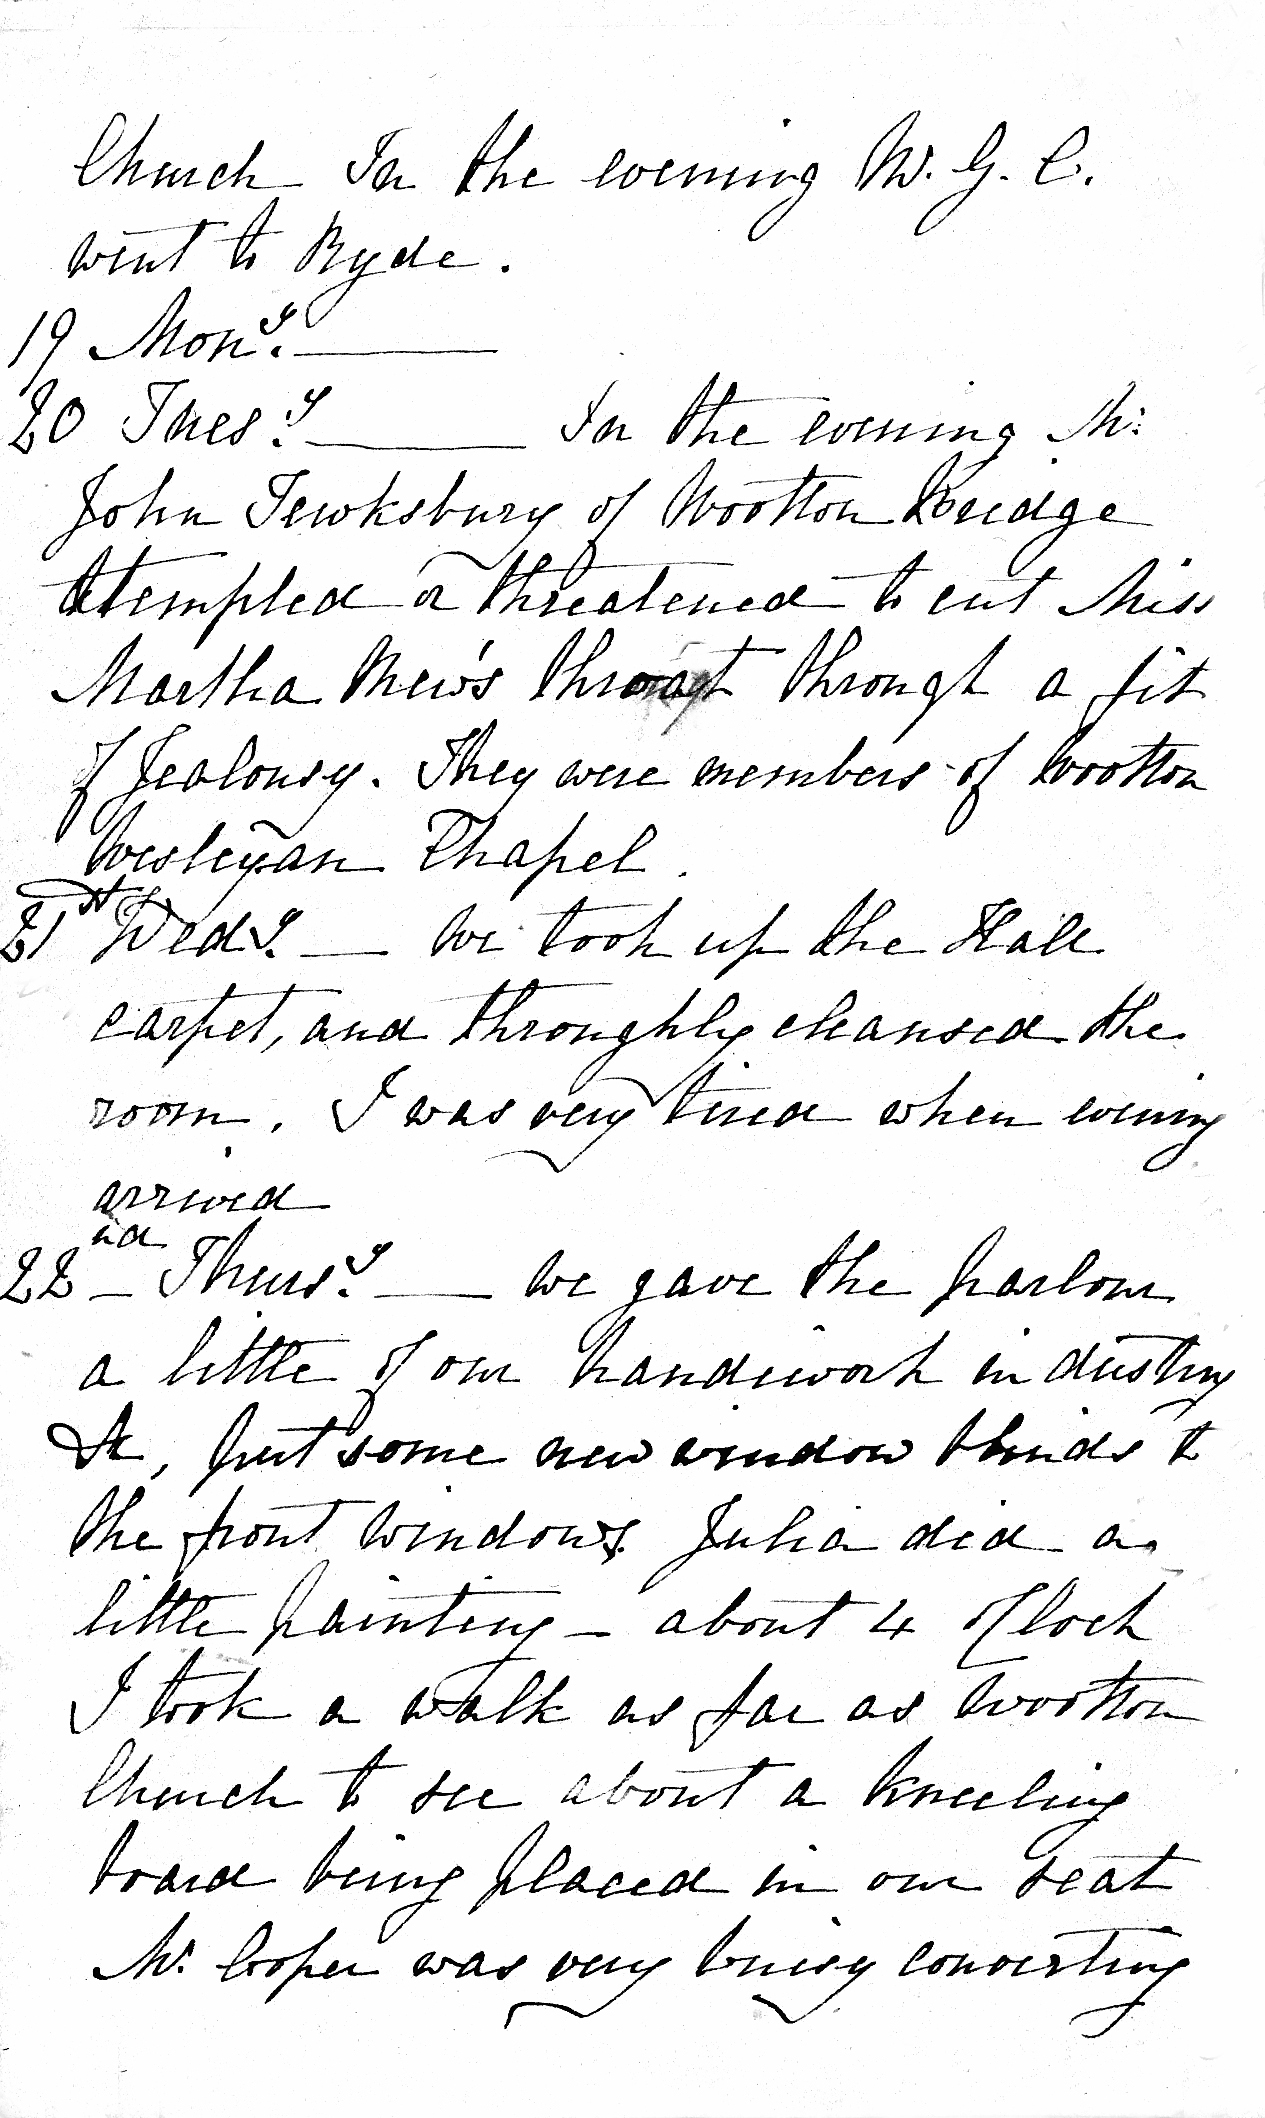 Church In the evening W. G. C.
went to Ryde.
19 Mony.
20 Tuesy. In the evening Mr.
John Tewksbury of Wootton Bridge
attempted or threatened to cut Miss
Martha Mew's throat through a fit
of Jealousy. They were members of Wootton
Wesleyan Chapel.
21st Wedy. — We took up the Hall
carpet, and throughly cleansed the
room. I was very tired when evening
arrived
22nd — Thursy. — We gave the parlour
a little of our handiwork in dusting
&c, put some new window blinds to
the front windows. Julia did a
little painting — about 4 o'Clock
I took a walk as far as Wootton
Church to see about a kneeling
board being placed in our seat
Mr. Cooper was very buisy converting